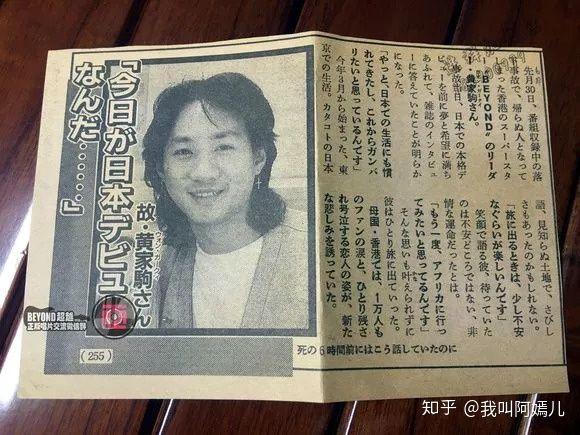 先月30日、番組収録中の落
下事故で、帰らぬ人となって
しまった香港のスーパースタ
ー“BEYOND”のリーダ
ー・黄家駒さん。
事故当日、日本での本格デ
ビューを前に夢と希望に満ち
あふれて、雑誌のインタビュ
ーに答えていたことが明らか
になった。
「やっと、日本での生活にも慣
れてきたし、これからガンバ
りたいと思っているんです」
今年3月から始まった、東
京での生活。カタコトの日本
語、見知らぬ土地で、さびし
さもあったのかもしれない。
「旅に出るときは、少し不安
なぐらいが楽しいんです」
笑顔で語る彼、待っていた
のは不安どころではない、非
情な運命だったとは。
「もう一度、アフリカに行っ
てみたいと思ってるんです」
そんな思いも叶えられずに
彼はひとり旅に出ていった。
母国・香港では、1万人も
のファンの涙と、ひとり残さ
れ号泣する恋人の姿が、新た
な悲しみを誘っていた。
死の6時間前にはこう話していたのに
「今日が日本デビュー
なんだ……」
故・黄家駒さん
(255)
BEYOND超越
正版唱片交流微信群
知乎 @我叫阿嫣儿